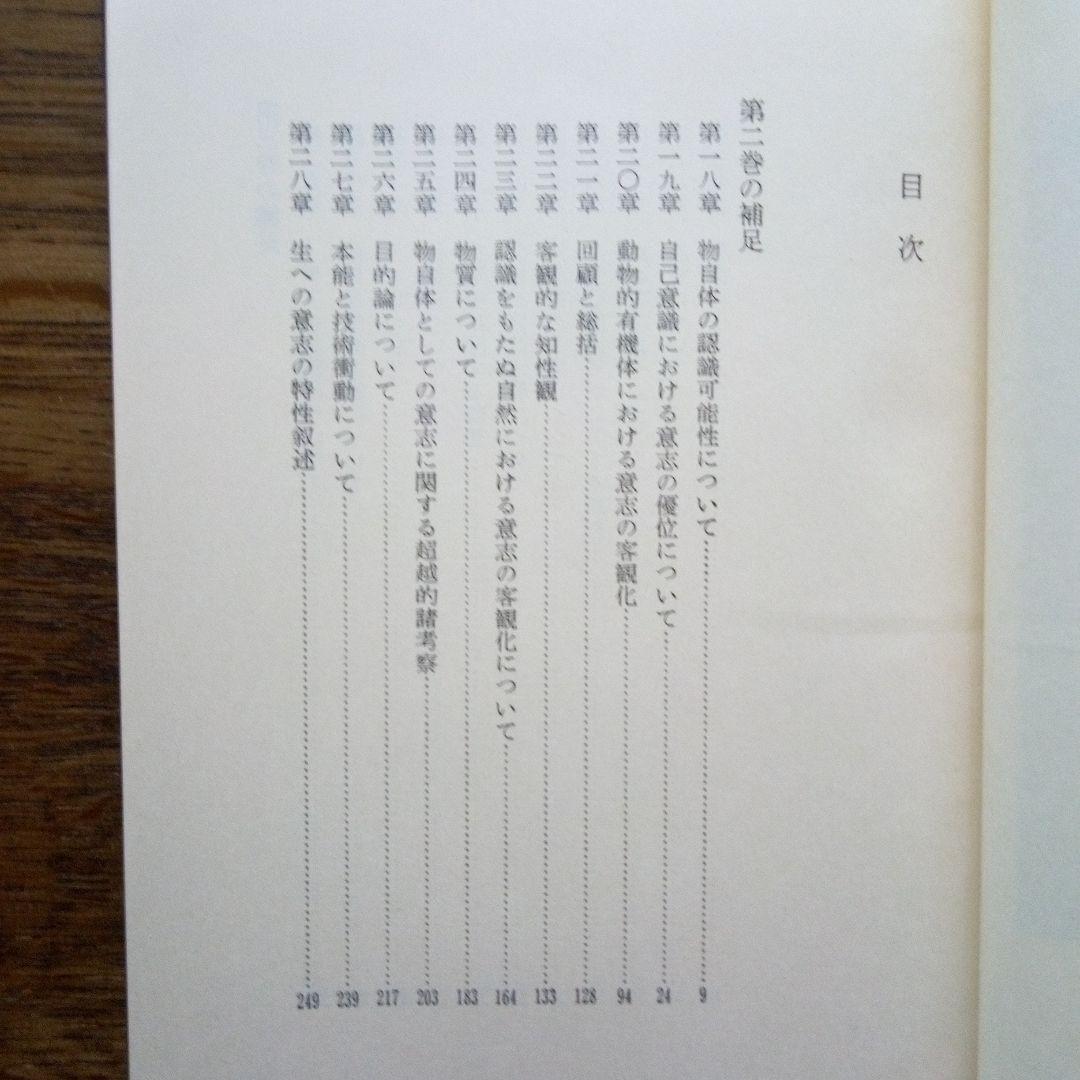 目次
第二巻の補足
第一八章 物自体の認識可能性について 9
第一九章 自己意識における意志の優位について 24
第二〇章 動物的有機体における意志の客観化 94
第二一章 回顧と総括 128
第二二章 客観的な知性観 133
第二三章 認識をもたぬ自然における意志の客観化について 164
第二四章 物質について 183
第二五章 物自体としての意志に関する超越的諸考察 203
第二六章 目的論について 217
第二七章 本能と技術衝動について 239
第二八章 生への意志の特性叙述 249